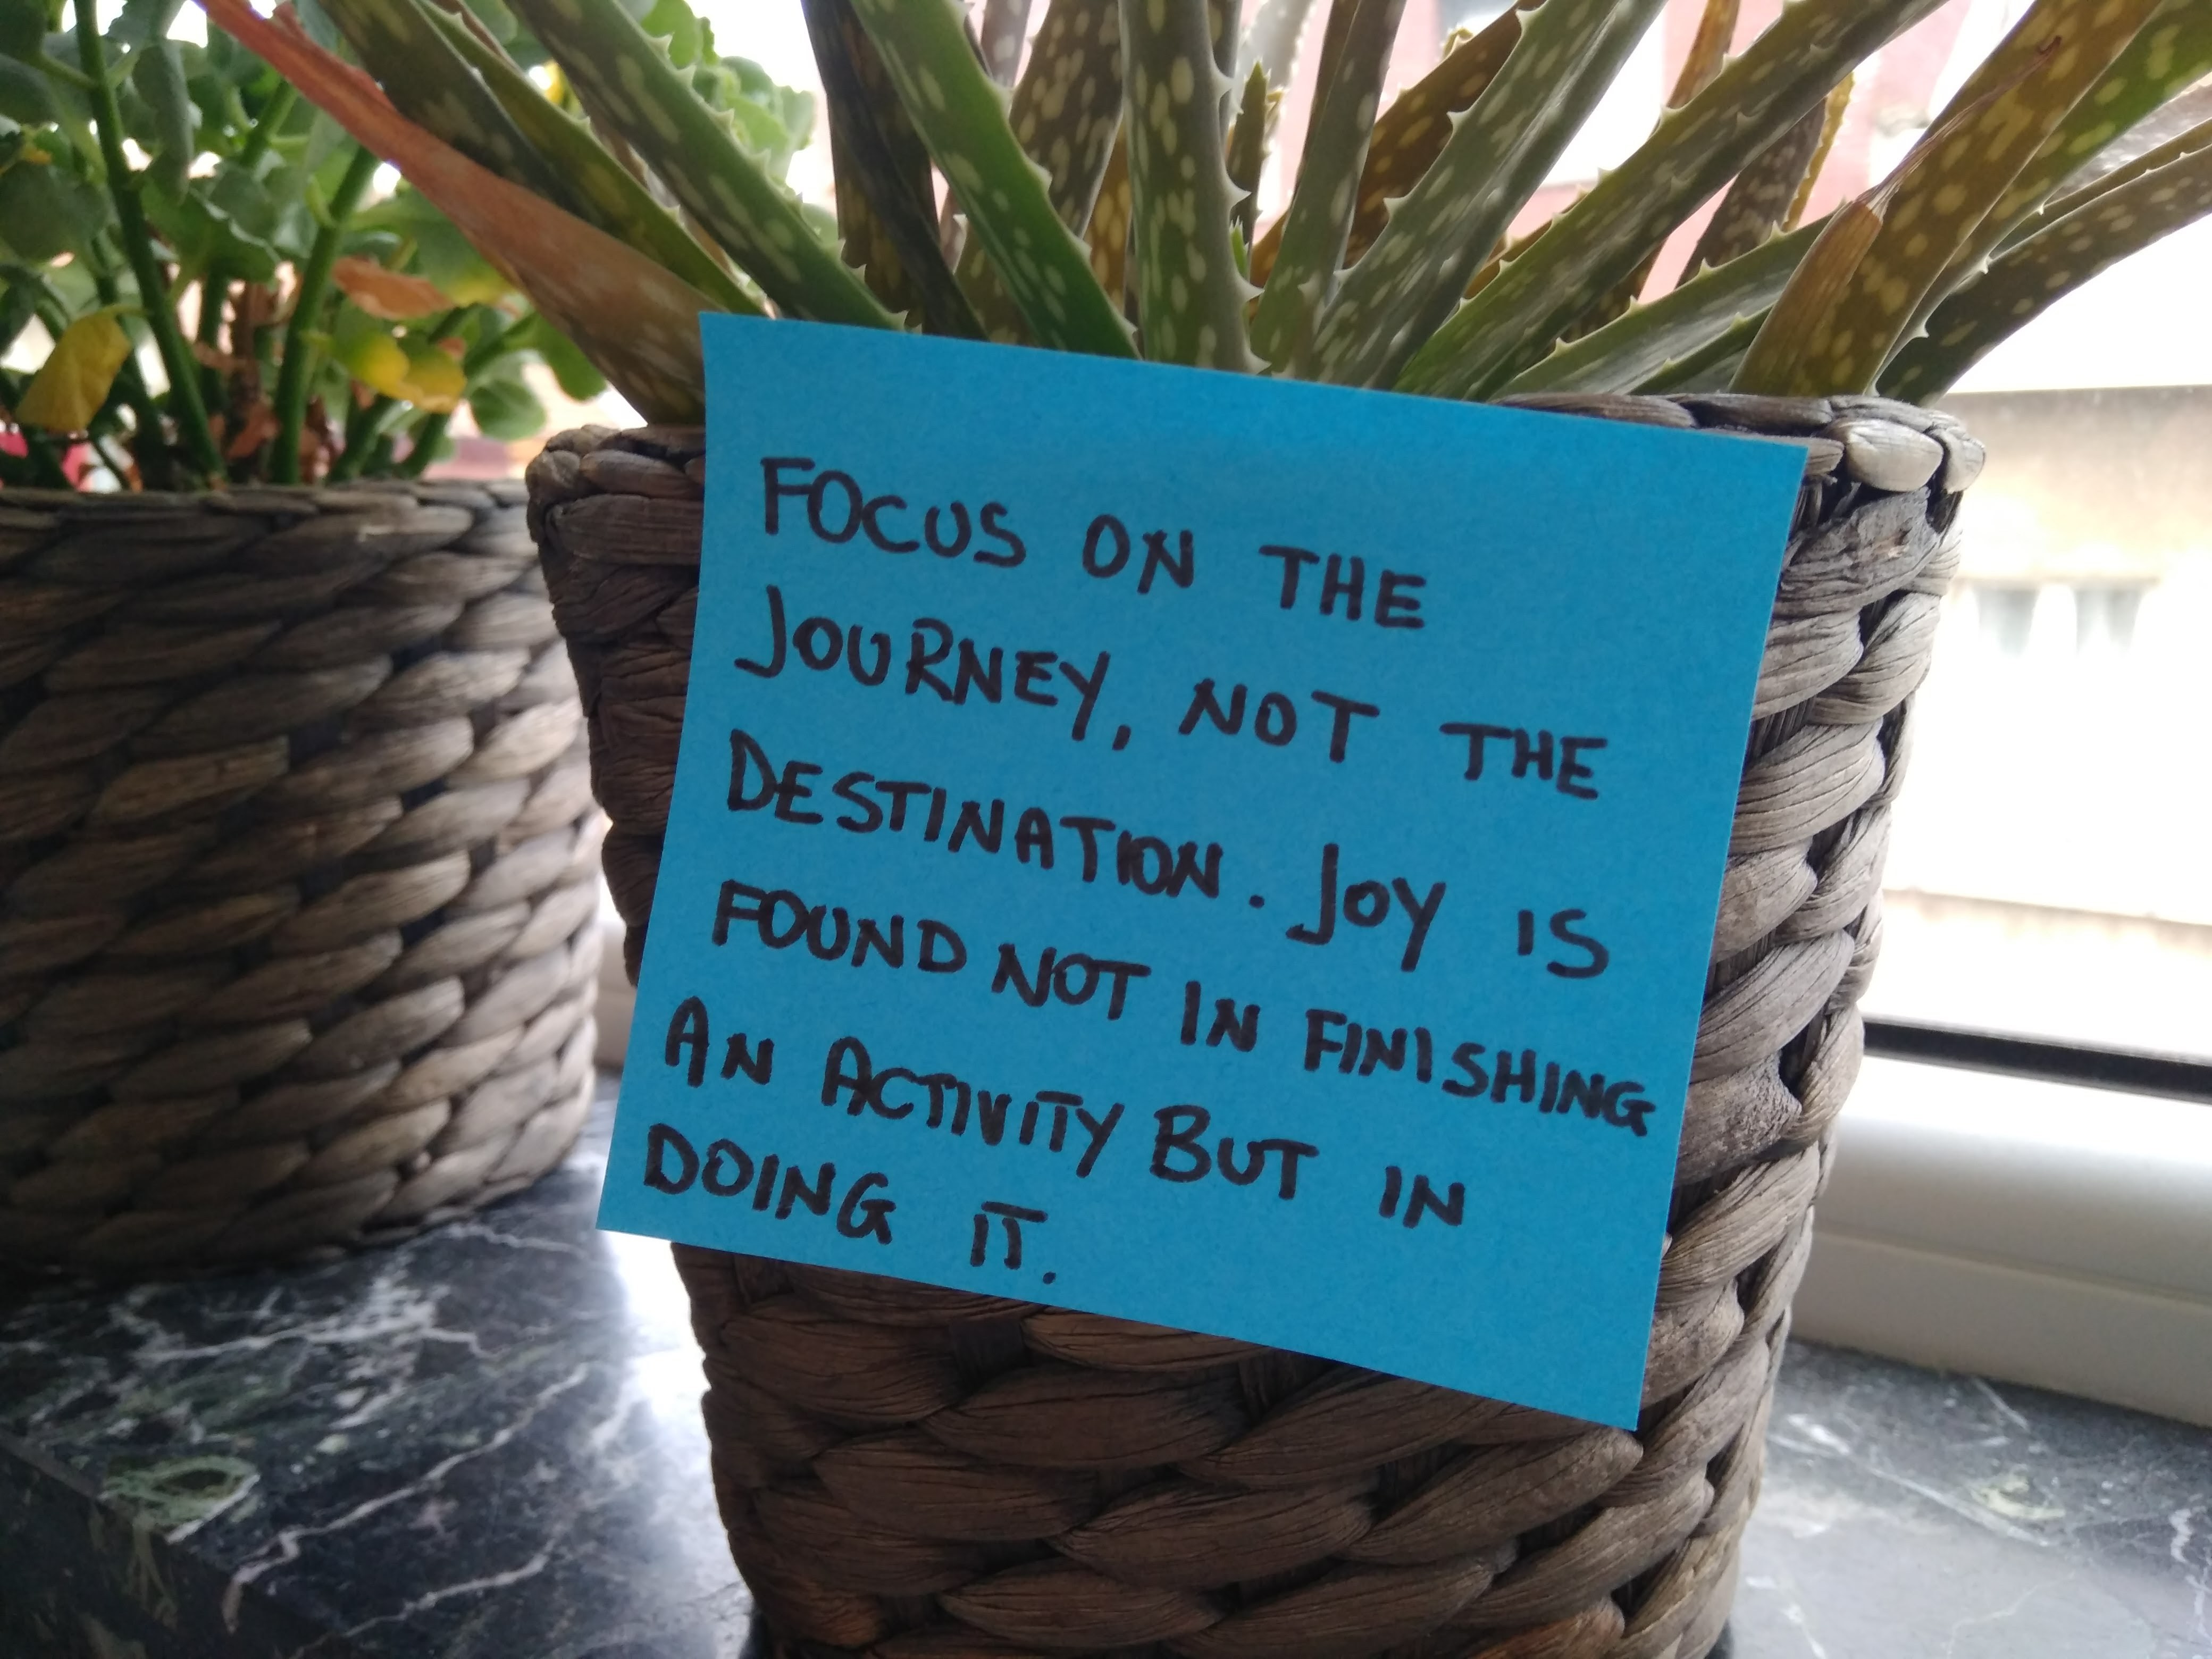 FOCUS ON THE
JOURNEY, NOT THE
DESTINATION. JOY IS
FOUND NOT IN FINISHING
AN ACTIVITY BUT IN
DOING IT.